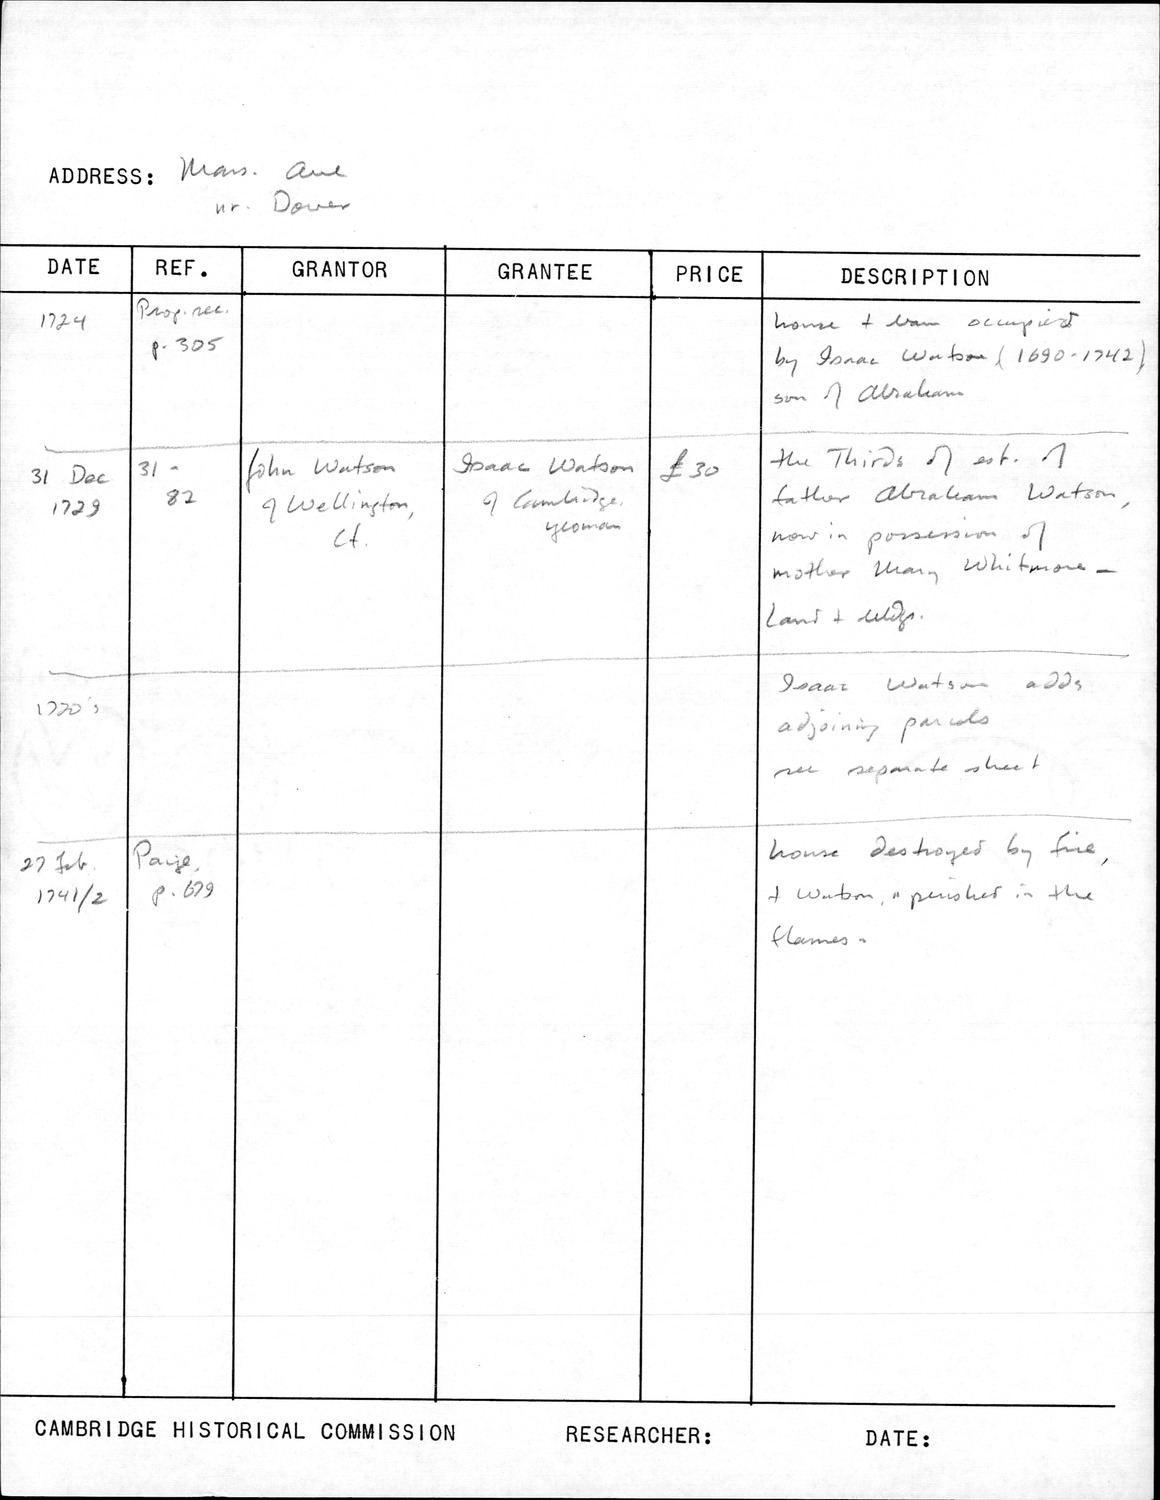 ADDRESS: Mass. Ave
nr. Dover
DATE REF. GRANTOR GRANTEE PRICE DESCRIPTION
1724
Prop. rec.
p. 305
house + barn occupied
by Isaac Watson (1690-1742)
son of Abraham
31 Dec
1729
31 -
82
John Watson
of Wellington,
Ct.
Isaac Watson
of Cambridge,
yeoman
£30
the Thirds of est. of
father Abraham Watson,
now in possession of
mother Mary Whitmore -
Land + bldgs.
1720's
Isaac Watson adds
adjoining parcels
see separate sheet
27 Feb.
1741/2
Paige,
p. 679
house destroyed by fire,
+ Watson, "perished in the
flames."
CAMBRIDGE HISTORICAL COMMISSION RESEARCHER: DATE: